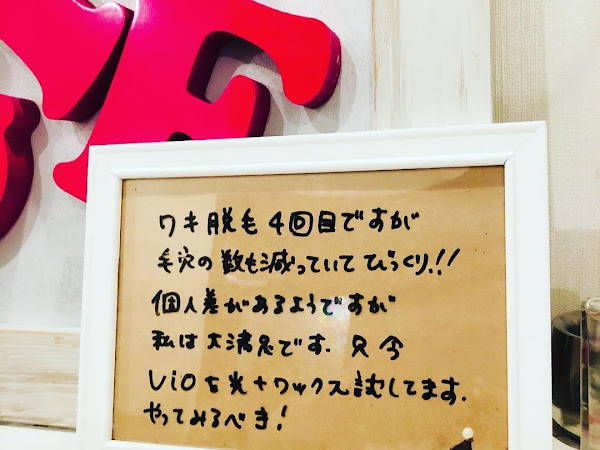 VE
ワキ脱毛4回目ですが
毛穴の数も減っていてびっくり!!
個人差があるようですが
私は大満足です. 只今
Vioを光+ワックス試してます.
やってみるべき!